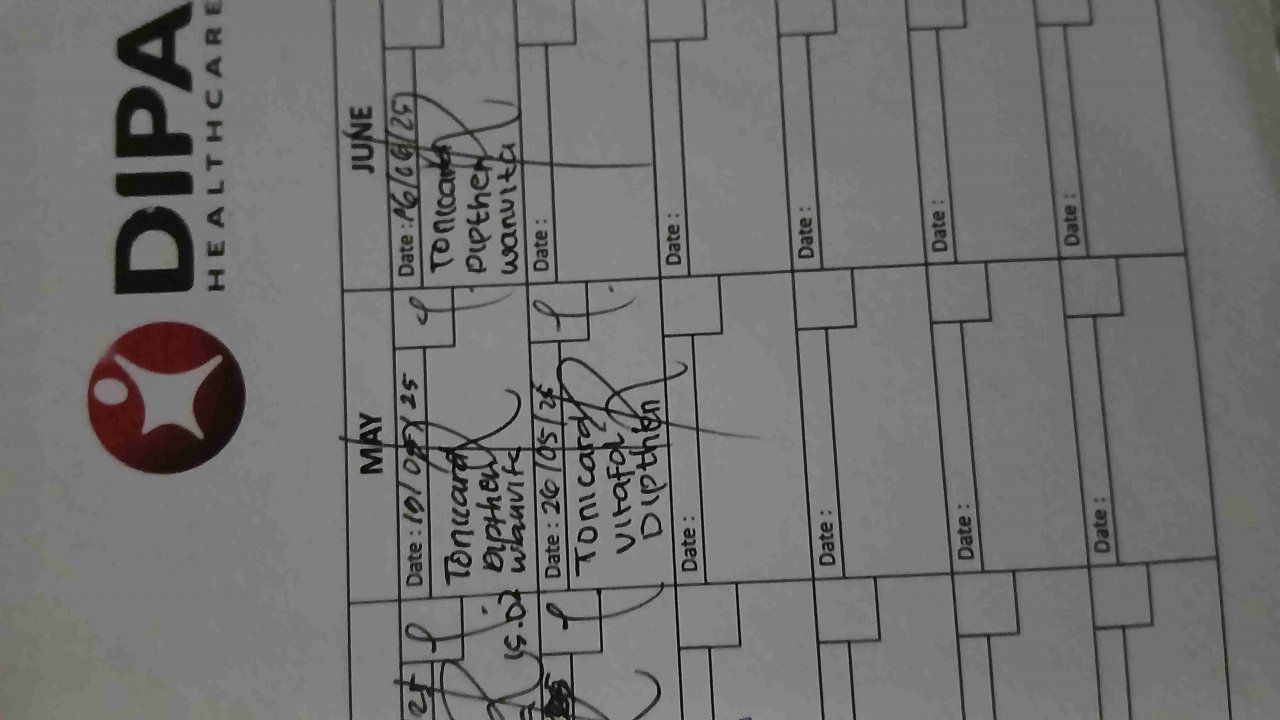 DIPA
HEALTHCARE
MAY
JUNE
25
15.02
Date : 19/05/25
Tonicard
Dipthen
Wanvita
Date : 26/05/25
Tonicard
Vitafol
Dipthen
Date :
Date :
Date :
Date :
Date : 16/06/25
Tonicard
Dipthen
wanvita
Date :
Date :
Date :
Date :
Date :